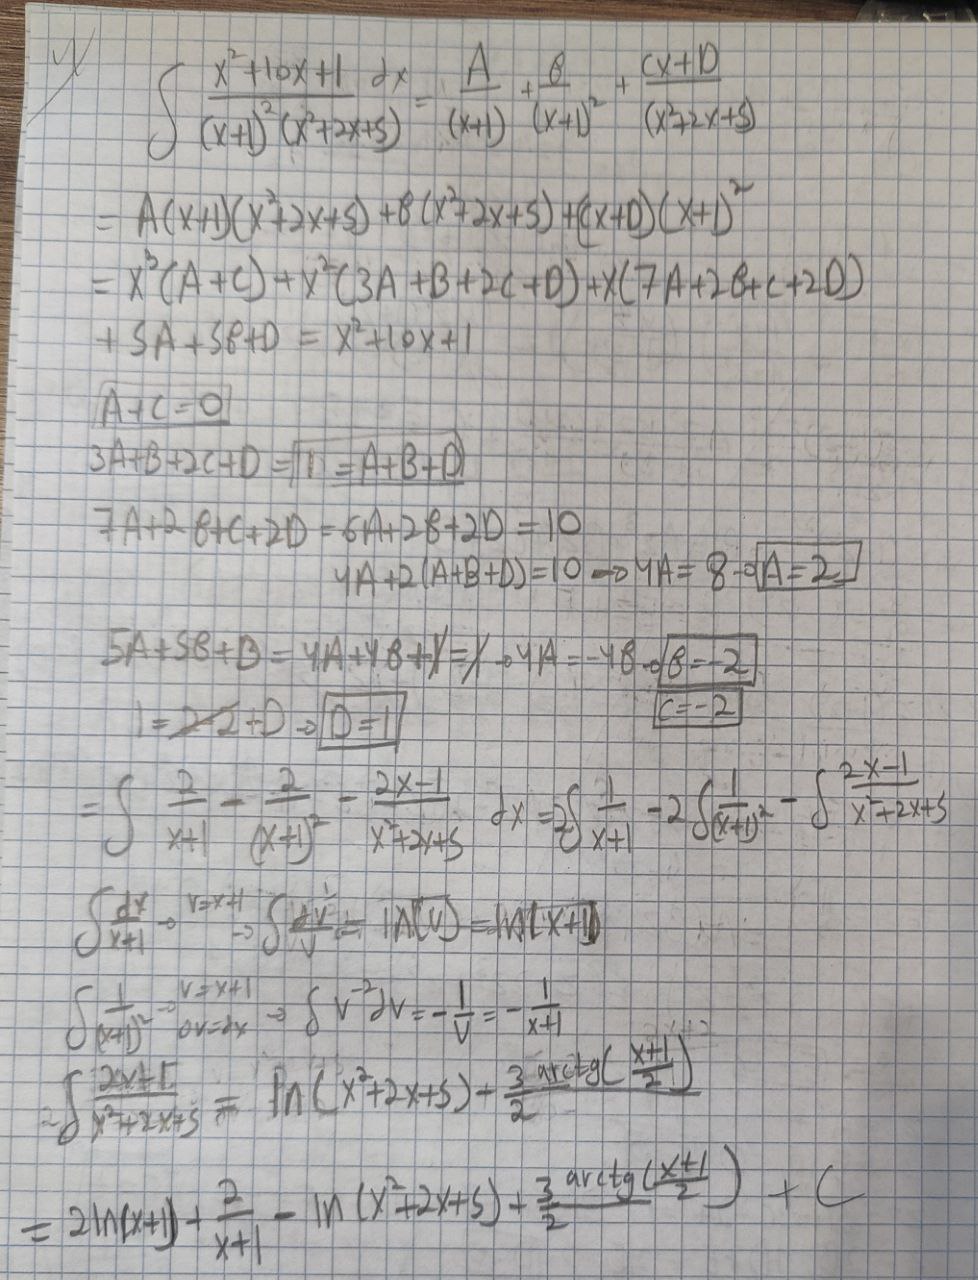 1/
∫ (x²+10x+1)/((x+1)²(x²+2x+5)) dx = A/(x+1) + B/(x+1)² + (Cx+D)/(x²+2x+5)
= A(x+1)(x²+2x+5)+B(x²+2x+5)+(Cx+D)(x+1)²
= x³(A+C)+x²(3A+B+2C+D)+x(7A+2B+C+2D)
+5A+5B+D = x²+10x+1
A+C=0
3A+B+2C+D = 1 = A+B+D
7A+2B+C+2D = 6A+2B+2D = 10
4A+2(A+B+D)=10 → 4A=8 → A=2
5A+5B+D = 4A+4B+1=1 → 4A=-4B → B=-2
C=-2
1=2-2+D → D=1
= ∫ 2/(x+1) - 2/(x+1)² - (2x-1)/(x²+2x+5) dx = 2∫ 1/(x+1) - 2∫ 1/(x+1)² - ∫ (2x-1)/(x²+2x+5)
∫ dx/(x+1) → v=x+1 → ∫ dv/v = ln(v) = ln(x+1)
∫ 1/(x+1)² → v=x+1 dv=dx → ∫ v⁻²dv = -1/v = -1/(x+1)
-∫ (2x+1)/(x²+2x+5) = ln(x²+2x+5) - 3/2 arctg((x+1)/2)
= 2ln(x+1) + 2/(x+1) - ln(x²+2x+5) + 3/2 arctg((x+1)/2) + C